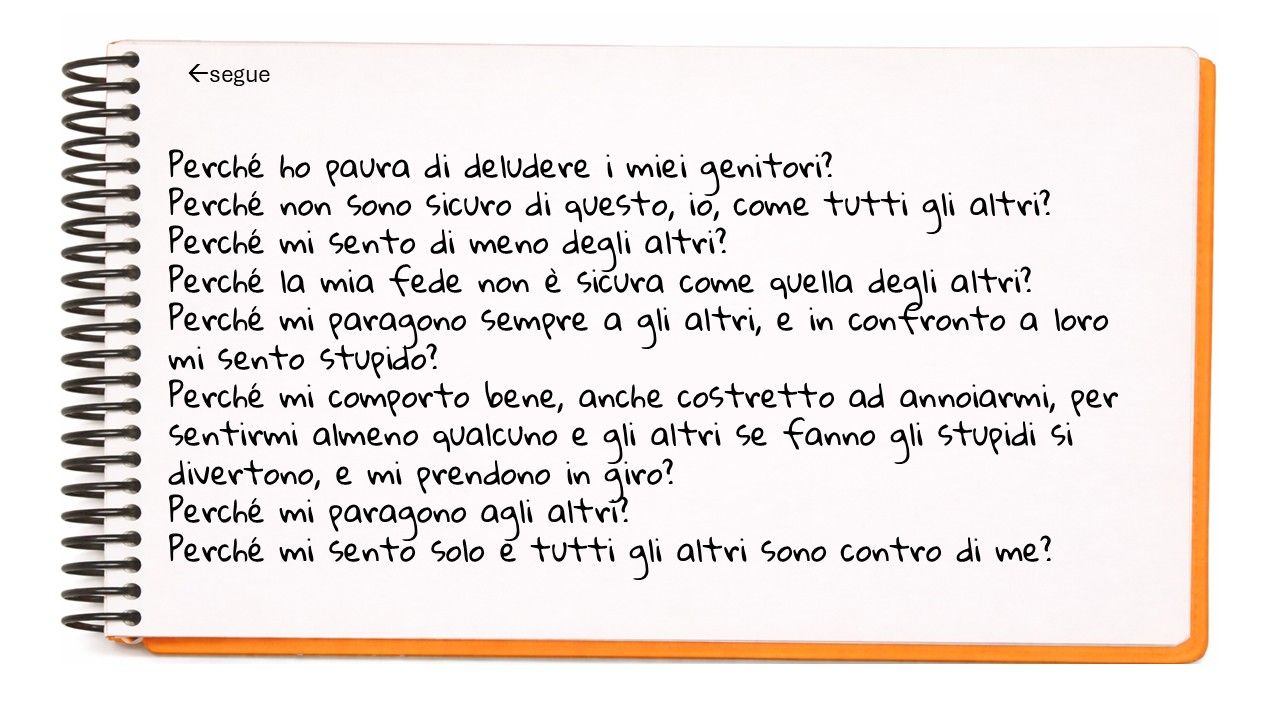 ←segue
Perché ho paura di deludere i miei genitori?
Perché non sono sicuro di questo, io, come tutti gli altri?
Perché mi sento di meno degli altri?
Perché la mia fede non è sicura come quella degli altri?
Perché mi paragono sempre a gli altri, e in confronto a loro
mi sento stupido?
Perché mi comporto bene, anche costretto ad annoiarmi, per
sentirmi almeno qualcuno e gli altri se fanno gli stupidi si
divertono, e mi prendono in giro?
Perché mi paragono agli altri?
Perché mi sento solo e tutti gli altri sono contro di me?